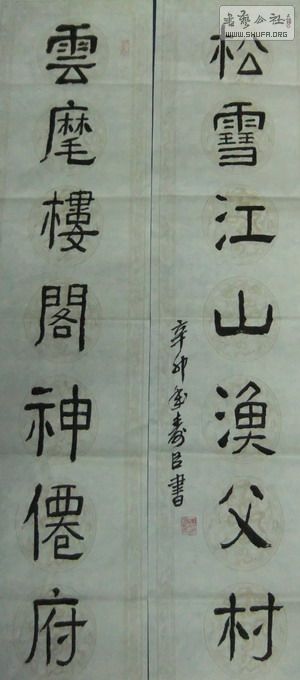 松雪江山漁父村
辛卯年壽臣書
雲麾樓閣神僊府
書藝公社
WWW.SHUFA.ORG